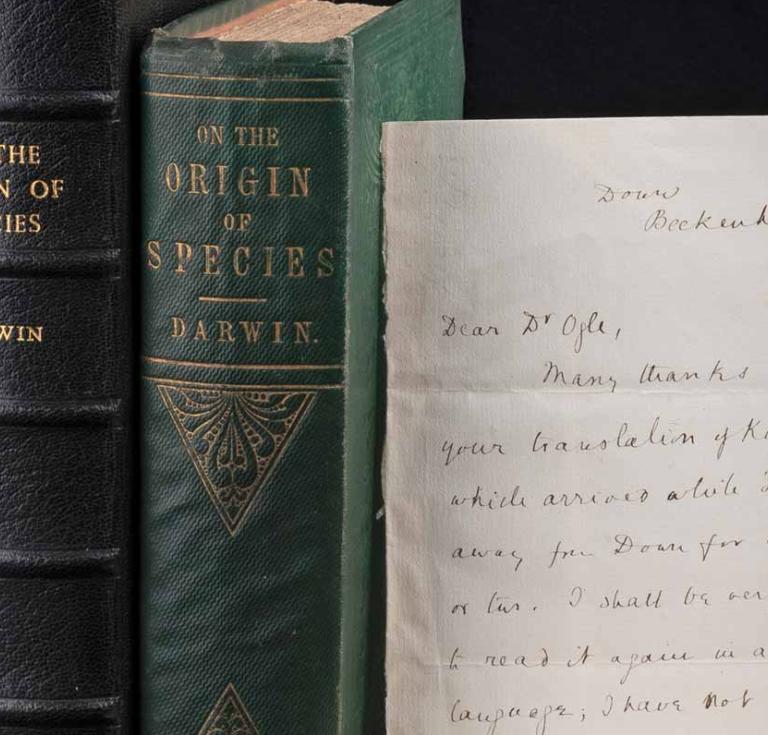 THE
N OF
IES
WIN
ON THE
ORIGIN
OF
SPECIES
DARWIN.
Down
Beckenh
Dear Dr Ogle,
Many thanks
your translation of K
which arrived while I
away from Down for
or two. I shall be ver
to read it again in a
language; I have not